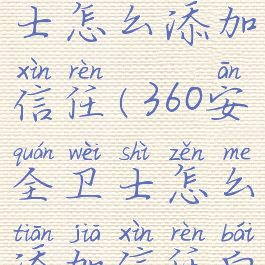 士怎么添加
xìn rèn ān
信任(360安
quán wèi shì zěn me
全卫士怎么
tiān jiā xìn rèn bái
添加信任白